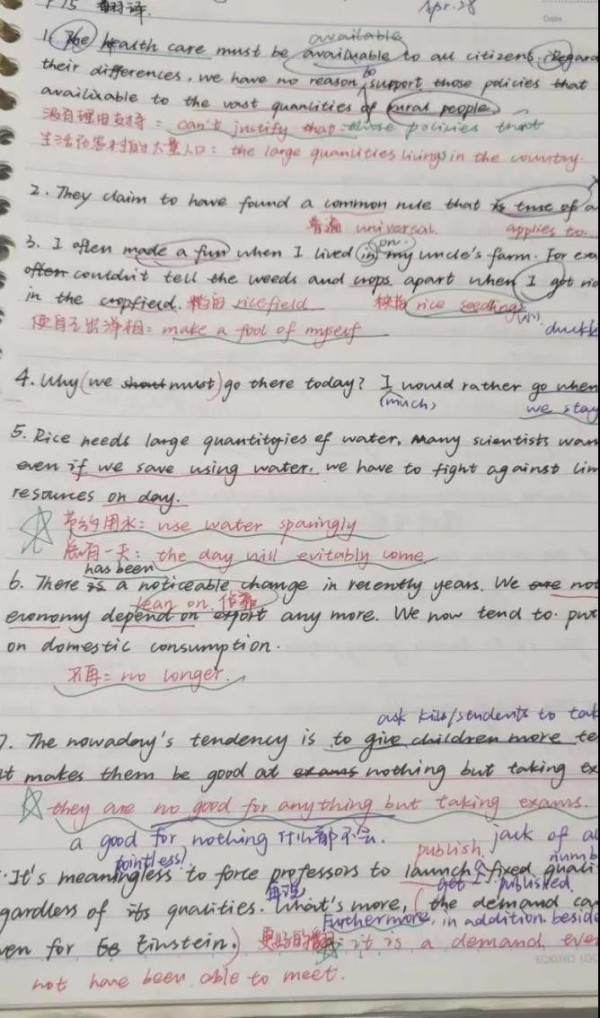 P 15 翻译 Apr.28
Date
available
1. The Health care must be availuable to all citizens. Regard
their differences, we have no reason to support those policies that
availiable to the vast quantities of rural people.
没有理由支持: can't justify that those policies that
生活在农村的大量人口: the large quantities livings in the country.
2. They claim to have found a common rule that is true of a
普遍 universal. applies to.
on.
3. I often made a fun when I lived in my uncle's farm. For exa
often couldn't tell the weeds and crops apart when I got rid
in the cropfield. 稻田 ricefield 秧苗 rice seedlings
使自己出洋相: make a fool of myself (小) duckl
4. Why (we must) go there today? I would rather go when
(much) we stay
5. Rice needs large quantitygies of water. Many scientists warn
even if we save using water, we have to fight against lim
resources on day.
节约用水: use water sparingly
总有一天: the day will evitably come
has been
6. There is a noticeable change in recently years. We are not
lean on. 依靠
economy depend on export any more. We now tend to put
on domestic consumption.
不再= no longer.
ask kids/students to tak
7. The nowaday's tendency is to give children more te
t makes them be good at exams nothing but taking ex
they are no good for anything but taking exams.
a good for nothing 什么都不会. jack of al
pointless! publish. numb
It's meaningless to force professors to launch fixed quali
再说 get published.
gardless of its qualities. What's more, (the demand can
Furthermore, in addition beside
ven for to Einstein.) 更好的翻译: it is a demand even
not have been able to meet.